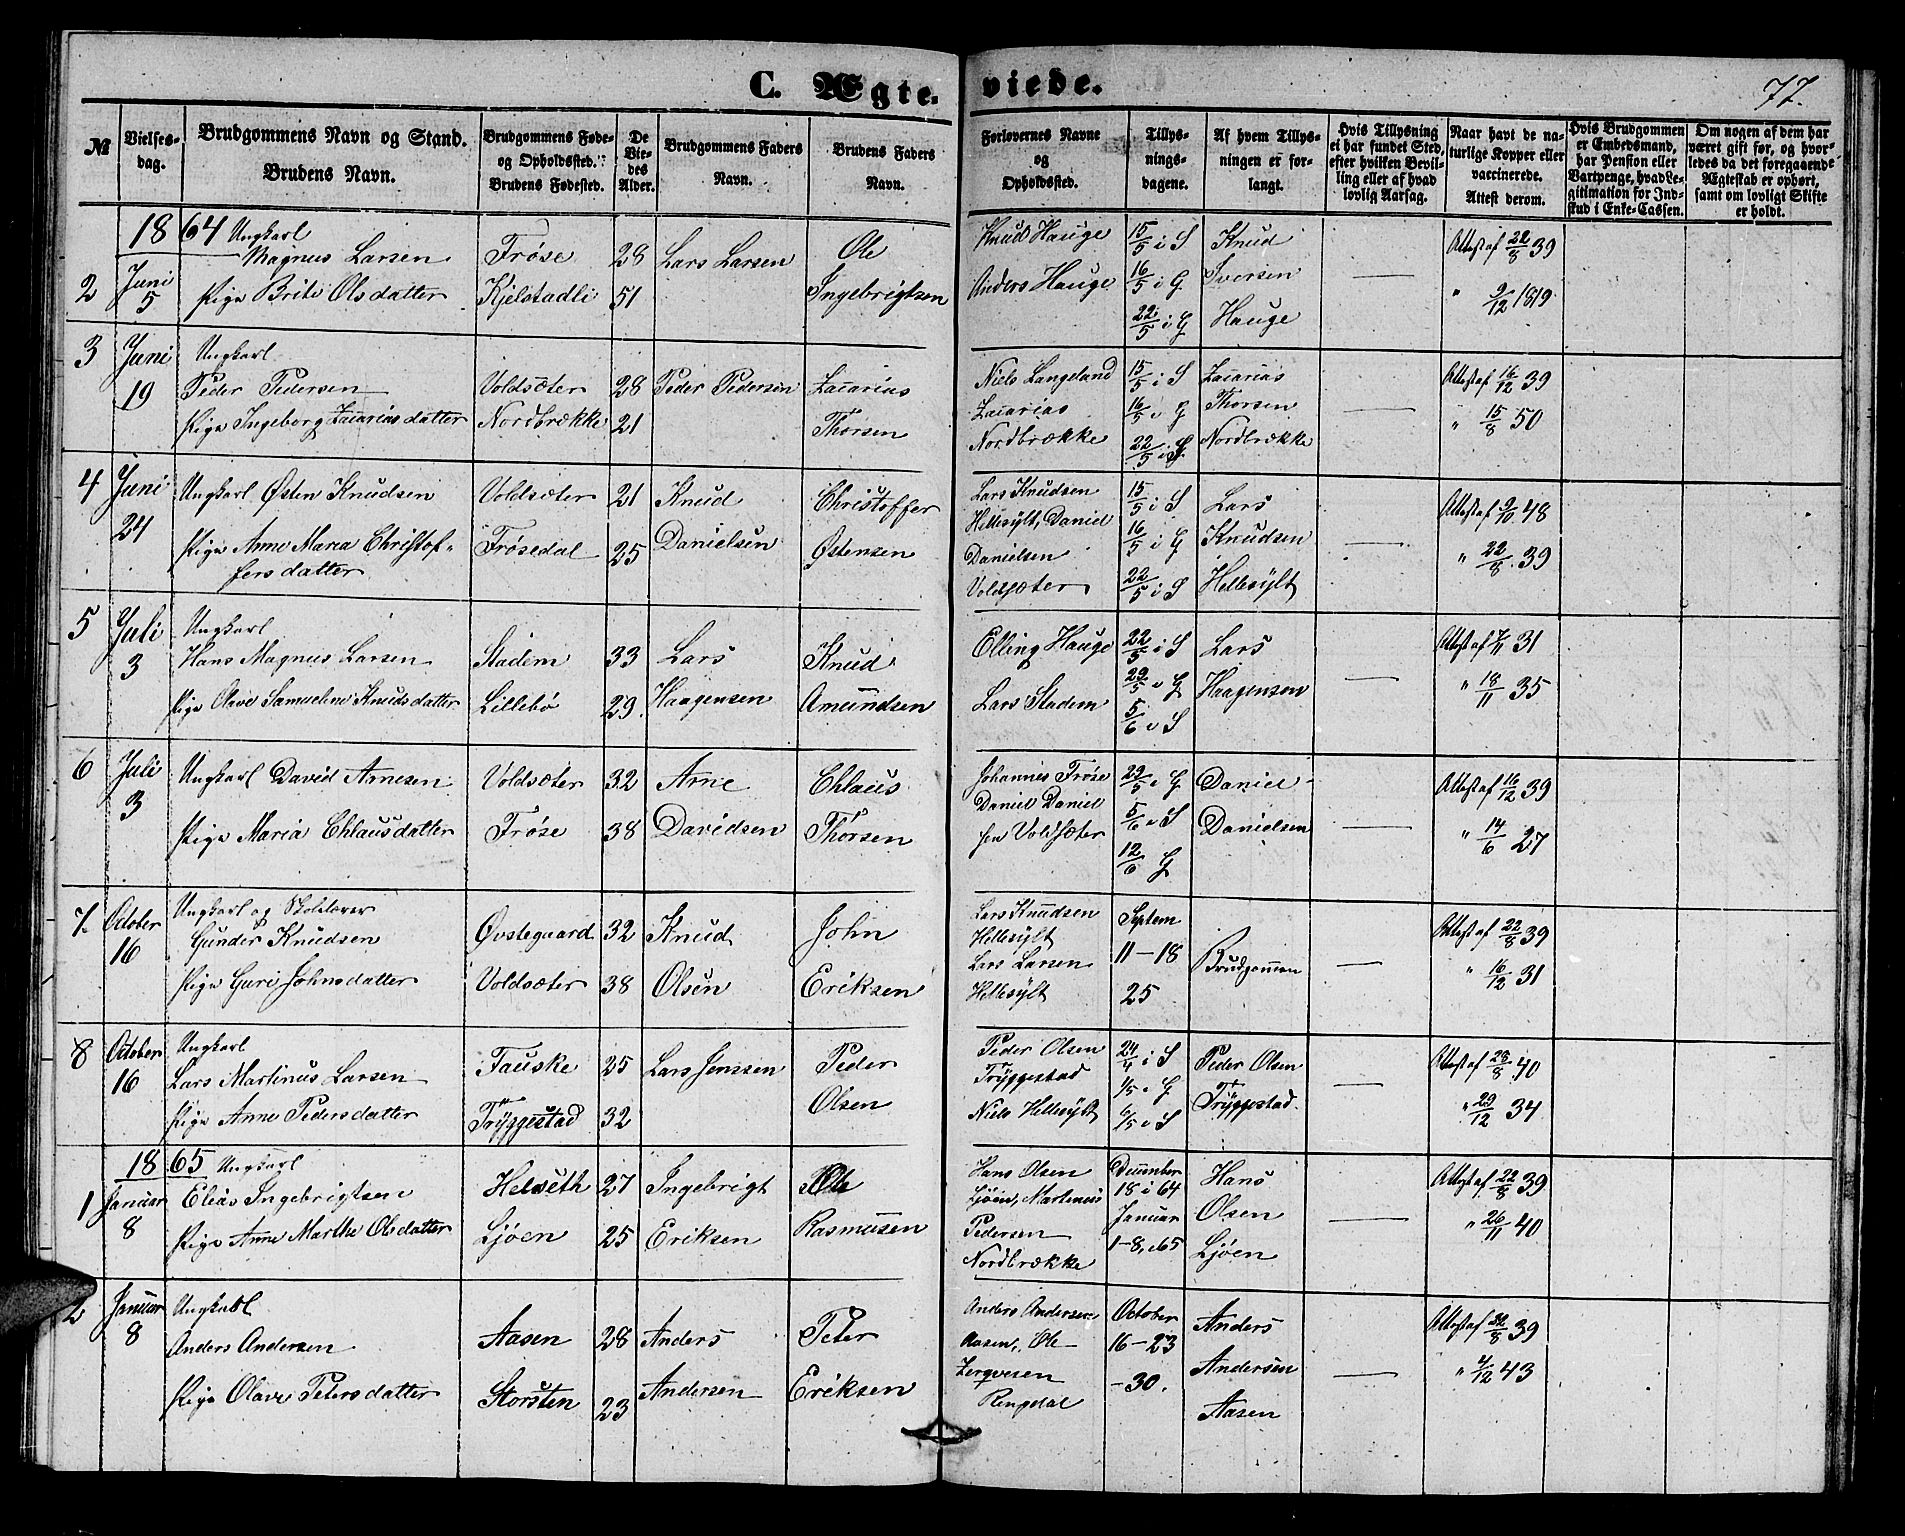 C. Ægte- viede.
77.
№
Vielses-
dag.
Brudgommens Navn og Stand.
Brudens Navn.
Brudgommens Føde-
og Opholdssted.
Brudens Fødested.
De
Vie-
des
Alder.
Brudgommens Faders
Navn.
Brudens Faders
Navn.
Forlovernes Navne
og
Opholdssted.
Tillys-
nings-
dagene.
Af hvem Tillys-
ningen er for-
langt.
Hvis Tillysning
ei har fundet Sted,
efter hvilken Bevil-
ling eller af hvad
lovlig Aarsag.
Naar havt de na-
turlige Kopper eller
vaccinerede.
Attest derom.
Hvis Brudgommen
er Embedsmand,
har Pension eller
Vartpenge, hvad Le-
gitimation for Ind-
skud i Enke-Cassen.
Om nogen af dem har
været gift før, og hvor-
ledes da det foregaaende
Ægteskab er ophørt,
samt om lovligt Skifte
er holdt.
1864
2
Juni
5
Ungkarl
Magnus Larsen
Pige Brite Olsdatter
Frøse
Kjelstadli
28
51
Lars Larsen
Ole
Ingebrigtsen
Knud Hauge
Anders Hauge
15/5 i S
16/5 i G
22/5 i G
Knud
Iversen
Hauge
Attest af 22/8 39
" 9/12 1819
3
Juni
19
Ungkarl
Peder Pedersen
Pige Ingeborg Zacariasdatter
Voldsæter
Nordbrække
28
21
Peder Pedersen
Zacarias
Thorsen
Niels Langeland
Zacarias
Nordbrække
15/5 i S
16/5 i G
22/5 i S
Zacarias
Thorsen
Nordbrække
Attest af 16/12 39
" 15/8 50
4
Juni
24
Ungkarl Østen Knudsen
Pige Anne Maria Christof-
fersdatter
Voldsæter
Frøsedal
21
25
Knud
Danielsen
Christoffer
Østensen
Lars Knudsen
Hellesylt, Daniel
Danielsen
Voldsæter
15/5 i S
16/5 i G
22/5 i S
Lars
Knudsen
Hellesylt
Attest af 9/10 48
" 22/8 39
5
Juli
3
Ungkarl
Hans Magnus Larsen
Pige Olave Samueline Knudsdatter
Stadem
Lillebø
33
29.
Lars
Haagensen
Knud
Amundsen
Elling Hauge
Lars Stadem
22/5 i S
29/5 i G
5/6 i S
Lars
Haagensen
Attest af 7/11 31
" 18/11 35
6
Juli
3
Ungkarl David Arnesen
Pige Maria Chlausdatter
Voldsæter
Frøse
32
38
Arne
Davidsen
Chlaus
Thorsen
Johannes Frøse
Daniel Daniel
sen Voldsæter
29/5 i G
5/6 i S
12/6 G
Daniel
Danielsen
Attest af 16/12 39
" 14/6 27
7.
October
16
Ungkarl og Skolelærer
Gunder Knudsen
Pige Guri Johnsdatter
Øvstegaard
Voldsæter
32
38
Knud
Olsen
John
Eriksen
Lars Knudsen
Hellesylt
Lars Larsen
Hellesylt
Septem
11-18
25
Brudgommen
Attest af 22/8 39
" 16/12 31
8
October
16
Ungkarl
Lars Martinus Larsen
Pige Anne Pedersdatter
Fauske
Tryggestad
25
32
Lars Jenssen
Peder
Olsen
Peder Olsen
Tryggestad
Niels Hellesylt
24/4 i S
1/5 i G
6/5 i S
Peder Olsen
Tryggestad.
Attest af 28/8 40
" 29/12 34
1865
1
Januar
8
Ungkarl
Elias Ingebrigtsen
Pige Anne Marthe Olsdatter
Helseth
Ljøen
27
25
Ingebrigt
Eriksen
Ole
Rasmusen
Hans Olsen
Ljøen, Martinus
Pedersen
Nordbrække
December
18 i 64
Januar
1-8, i 65
Hans
Olsen
Ljøen
Attest af 22/8 39
" 26/11 40
2
Januar
8
Ungkarl
Anders Andersen
Pige Olave Petersdatter
Aasen
Storsten
28
23
Anders
Andersen
Peter
Eriksen
Anders Andersen
Aasen, Ole
Ringdal
October
16-23
-30.
Anders
Andersen
Aasen
Attest af 22/8 39
" 4/12 43